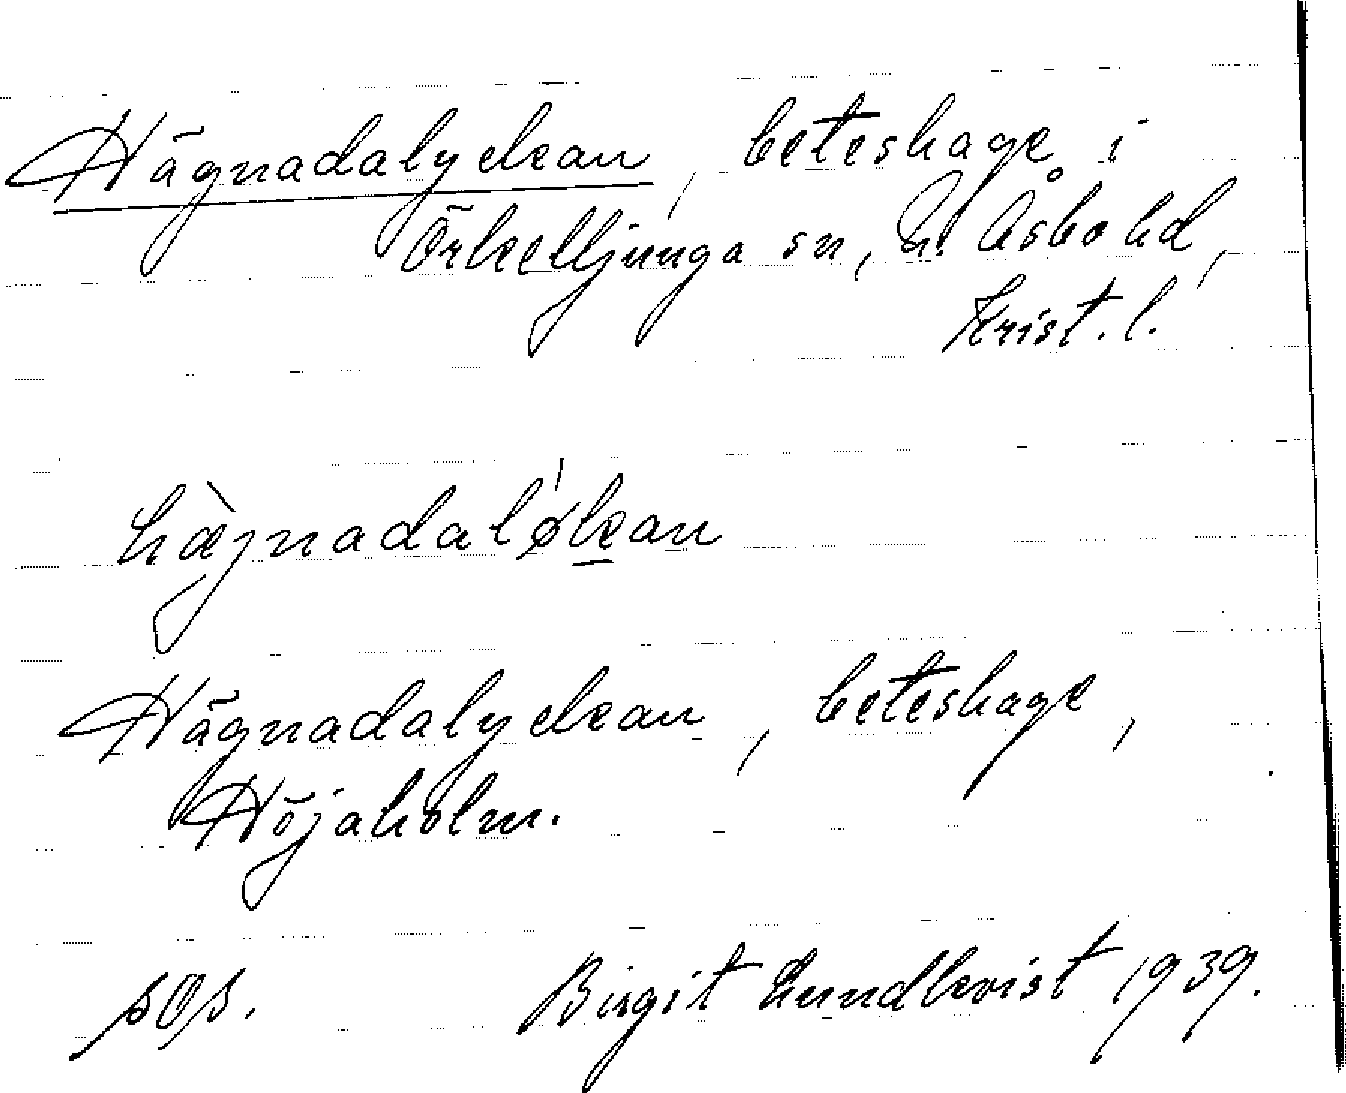 Hägnadalyckan, beteshage i
Örkelljunga sn, N. Åsbo hd,
Krist. l.
hæ̀jnadalø̍kan
Hägnadalyckan, beteshage,
Höjaholm.
Birgit Lundkvist 1939.